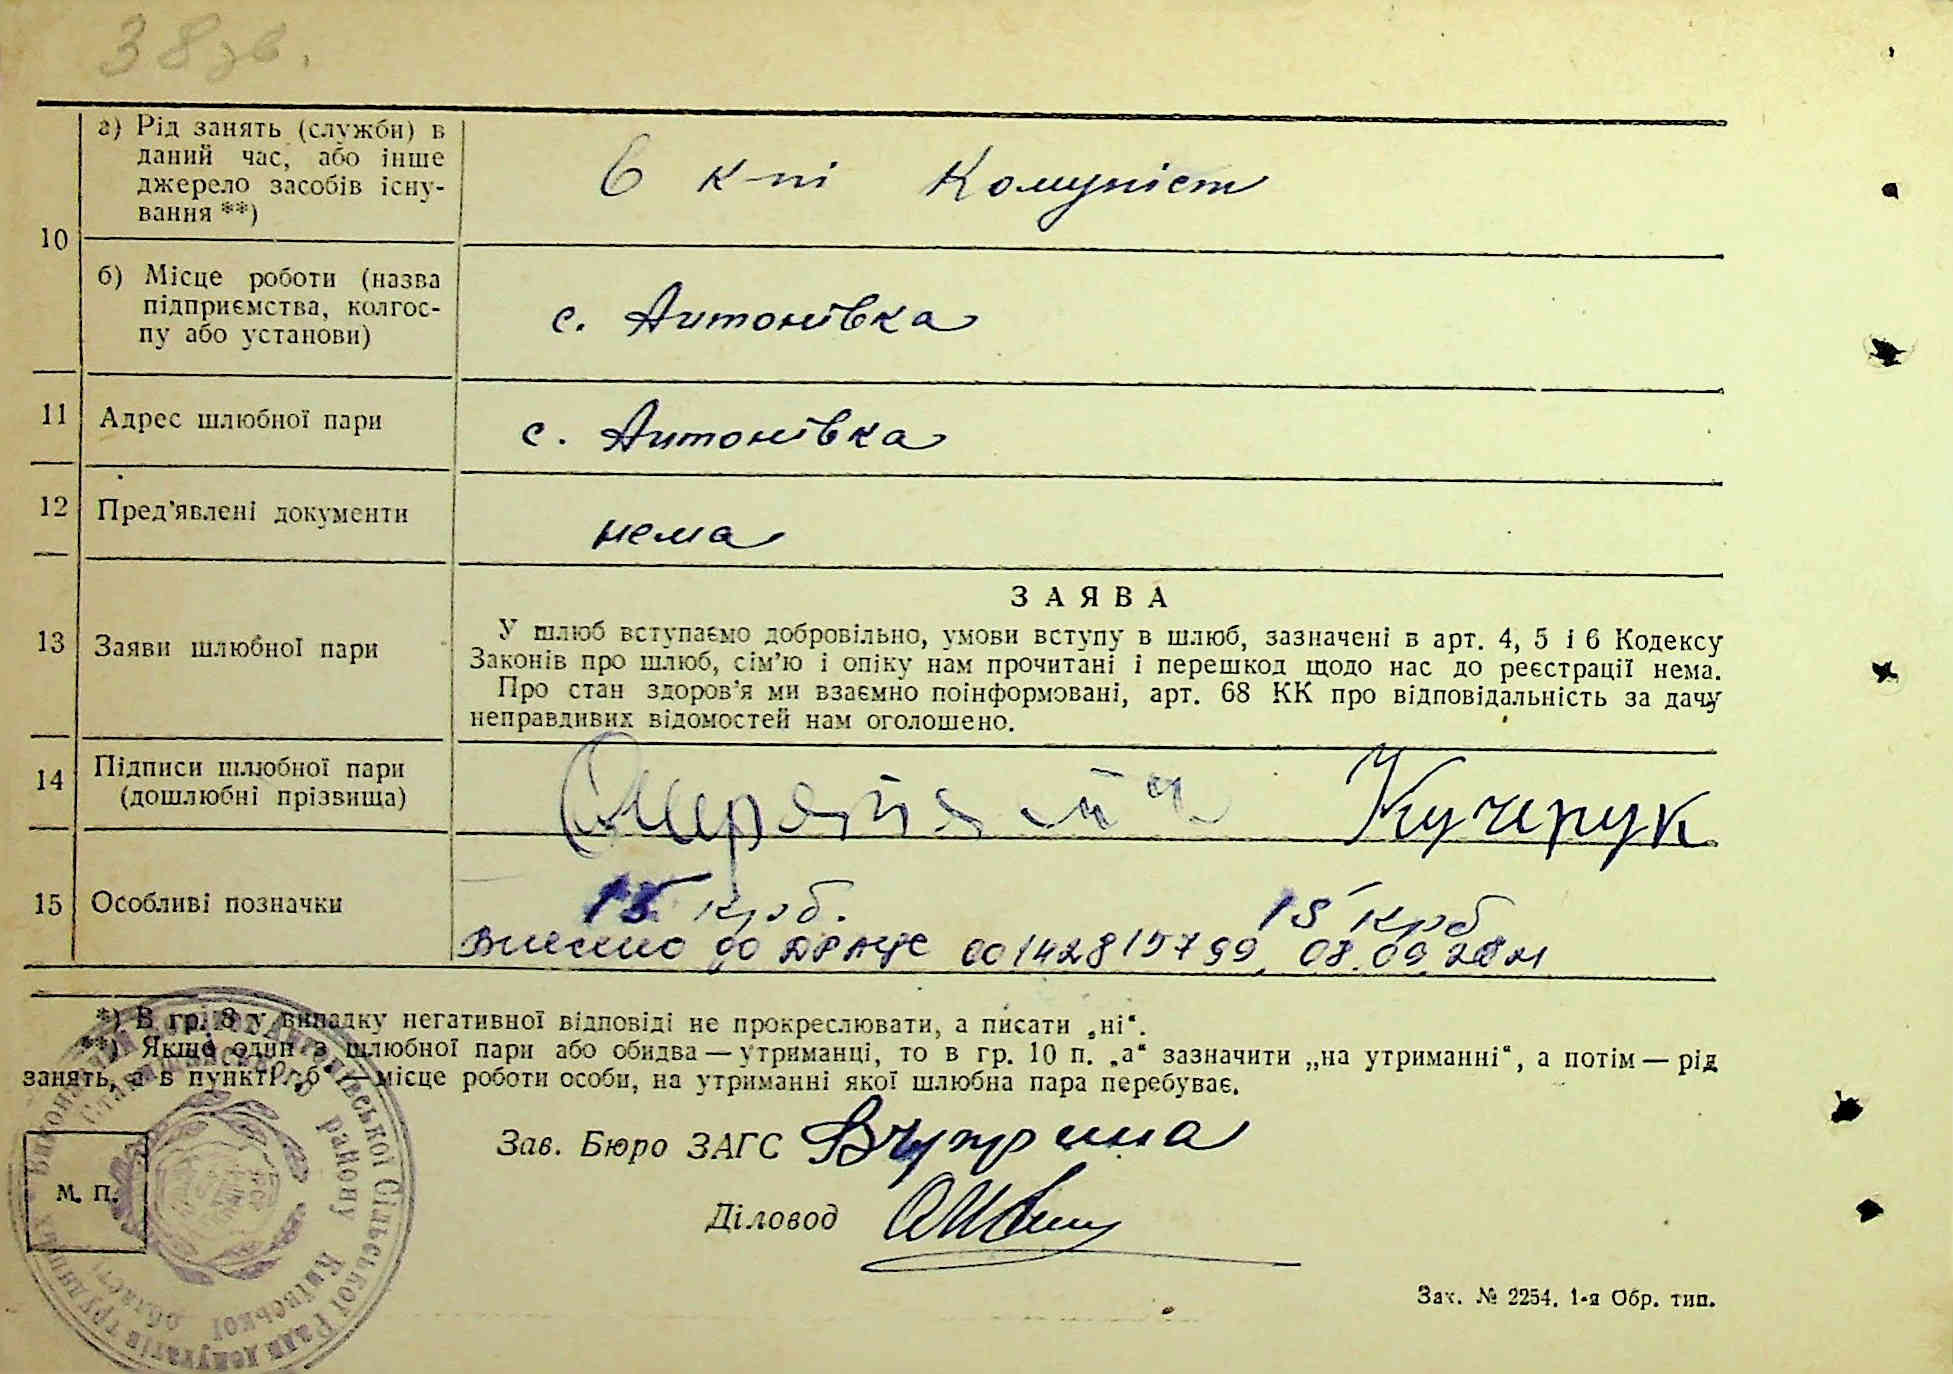 38 зв.
а) Рід занять (служби) в
даний час, або інше
джерело засобів існу-
вання **)
в к-пі Комуніст
10
б) Місце роботи (назва
підприємства, колгос-
пу або установи)
с. Антонівка
11 Адрес шлюбної пари с. Антонівка
12 Пред'явлені документи нема
13 Заяви шлюбної пари
ЗАЯВА
У шлюб вступаємо добровільно, умови вступу в шлюб, зазначені в арт. 4, 5 і 6 Кодексу
Законів про шлюб, сім'ю і опіку нам прочитані і перешкод щодо нас до реєстрації нема.
Про стан здоров'я ми взаємно поінформовані, арт. 68 КК про відповідальність за дачу
неправдивих відомостей нам оголошено.
14 Підписи шлюбної пари
(дошлюбні прізвища)
Кучерук
15 Особливі позначки
15 крб. 15 крб
Внесено до ДРАЦС 00142815799, 08.09.2021
*) В гр. 8 у випадку негативної відповіді не прокреслювати, а писати „ні“.
**) Якщо один з шлюбної пари або обидва — утриманці, то в гр. 10 п. „а“ зазначити „на утриманні“, а потім — рід
занять, а в пункті „б“ — місце роботи особи, на утриманні якої шлюбна пара перебуває.
Зав. Бюро ЗАГС
Діловод
М. П.
Сільської Ради депутатів трудящих
району Київської області
Зак. № 2254. 1-я Обр. тип.